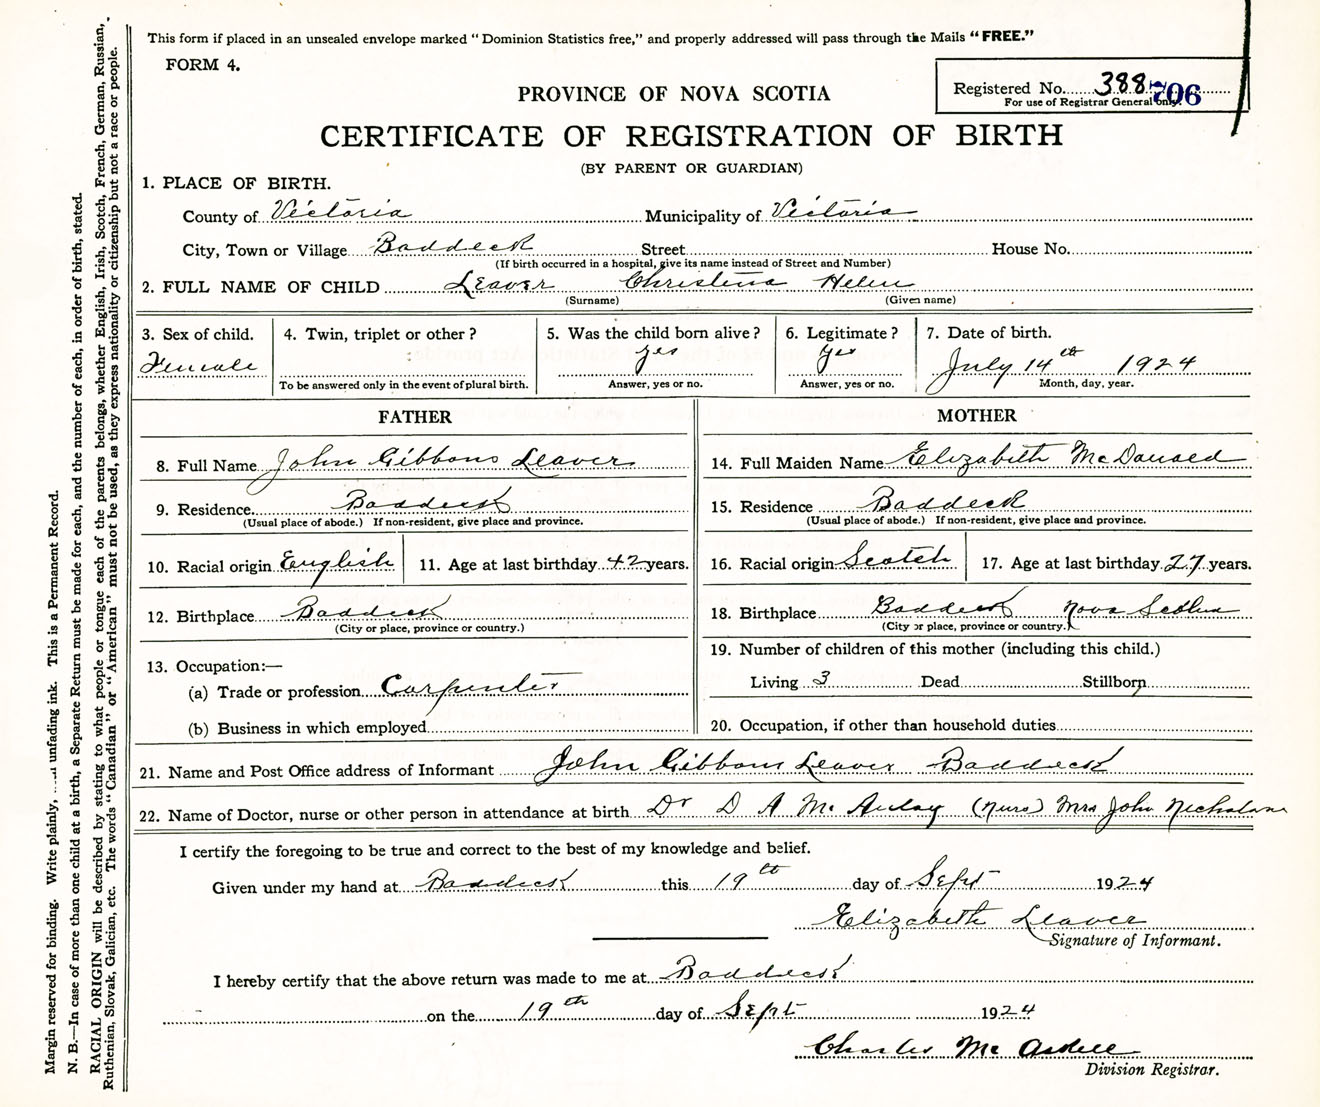 This form if placed in an unsealed envelope marked "Dominion Statistics free," and properly addressed will pass through the Mails "FREE."
FORM 4.
Registered No. 388 706
For use of Registrar General only.
PROVINCE OF NOVA SCOTIA
CERTIFICATE OF REGISTRATION OF BIRTH
(BY PARENT OR GUARDIAN)
1. PLACE OF BIRTH.
County of Victoria Municipality of Victoria
City, Town or Village Baddeck Street House No.
(If birth occurred in a hospital, give its name instead of Street and Number)
2. FULL NAME OF CHILD Leaver Christina Helen
(Surname) (Given name)
3. Sex of child. 4. Twin, triplet or other? 5. Was the child born alive? 6. Legitimate? 7. Date of birth.
Female yes yes July 14th 1924
To be answered only in the event of plural birth. Answer, yes or no. Answer, yes or no. Month, day, year.
FATHER
8. Full Name John Gibbons Leaver
9. Residence Baddeck
(Usual place of abode.) If non-resident, give place and province.
10. Racial origin English 11. Age at last birthday 42 years.
12. Birthplace Baddeck
(City or place, province or country.)
13. Occupation:—
(a) Trade or profession Carpenter
(b) Business in which employed
MOTHER
14. Full Maiden Name Elizabeth McDonald
15. Residence Baddeck
(Usual place of abode.) If non-resident, give place and province.
16. Racial origin Scotch 17. Age at last birthday 27 years.
18. Birthplace Baddeck Nova Scotia
(City or place, province or country.)
19. Number of children of this mother (including this child.)
Living 3 Dead Stillborn
20. Occupation, if other than household duties
21. Name and Post Office address of Informant John Gibbons Leaver Baddeck
22. Name of Doctor, nurse or other person in attendance at birth Dr D A McAulay (Nurse) Mrs John
I certify the foregoing to be true and correct to the best of my knowledge and belief.
Given under my hand at Baddeck this 19th day of Sept 1924
Elizabeth Leaver
Signature of Informant.
I hereby certify that the above return was made to me at Baddeck
on the 19th day of Sept 1924
Charles
Division Registrar.
Margin reserved for binding. Write plainly, unfading ink. This is a Permanent Record.
N. B.—In case of more than one child at a birth, a Separate Return must be made for each, and the number of each, in order of birth, stated.
RACIAL ORIGIN will be described by stating to what people or tongue each of the parents belongs, whether English, Irish, Scotch, French, German, Russian,
Ruthenian, Slovak, Galician, etc. The words "Canadian" or "American" must not be used, as they express nationality or citizenship but not a race or people.